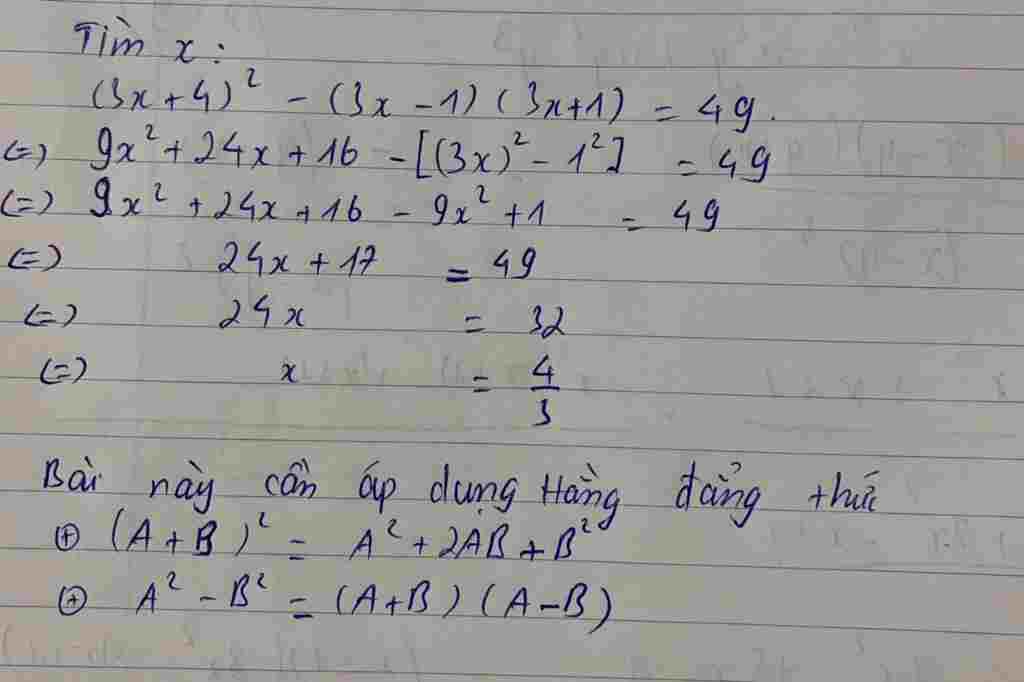 Tìm x:
(3x+4)² - (3x-1)(3x+1) = 49.
(=) 9x² + 24x + 16 - [(3x)² - 1²] = 49
(=) 9x² + 24x + 16 - 9x² + 1 = 49
(=) 24x + 17 = 49
(=) 24x = 32
(=) x = 4/3
Bài này cần áp dụng Hằng đẳng thức
⊕ (A+B)² = A² + 2AB + B²
⊕ A² - B² = (A+B)(A-B)